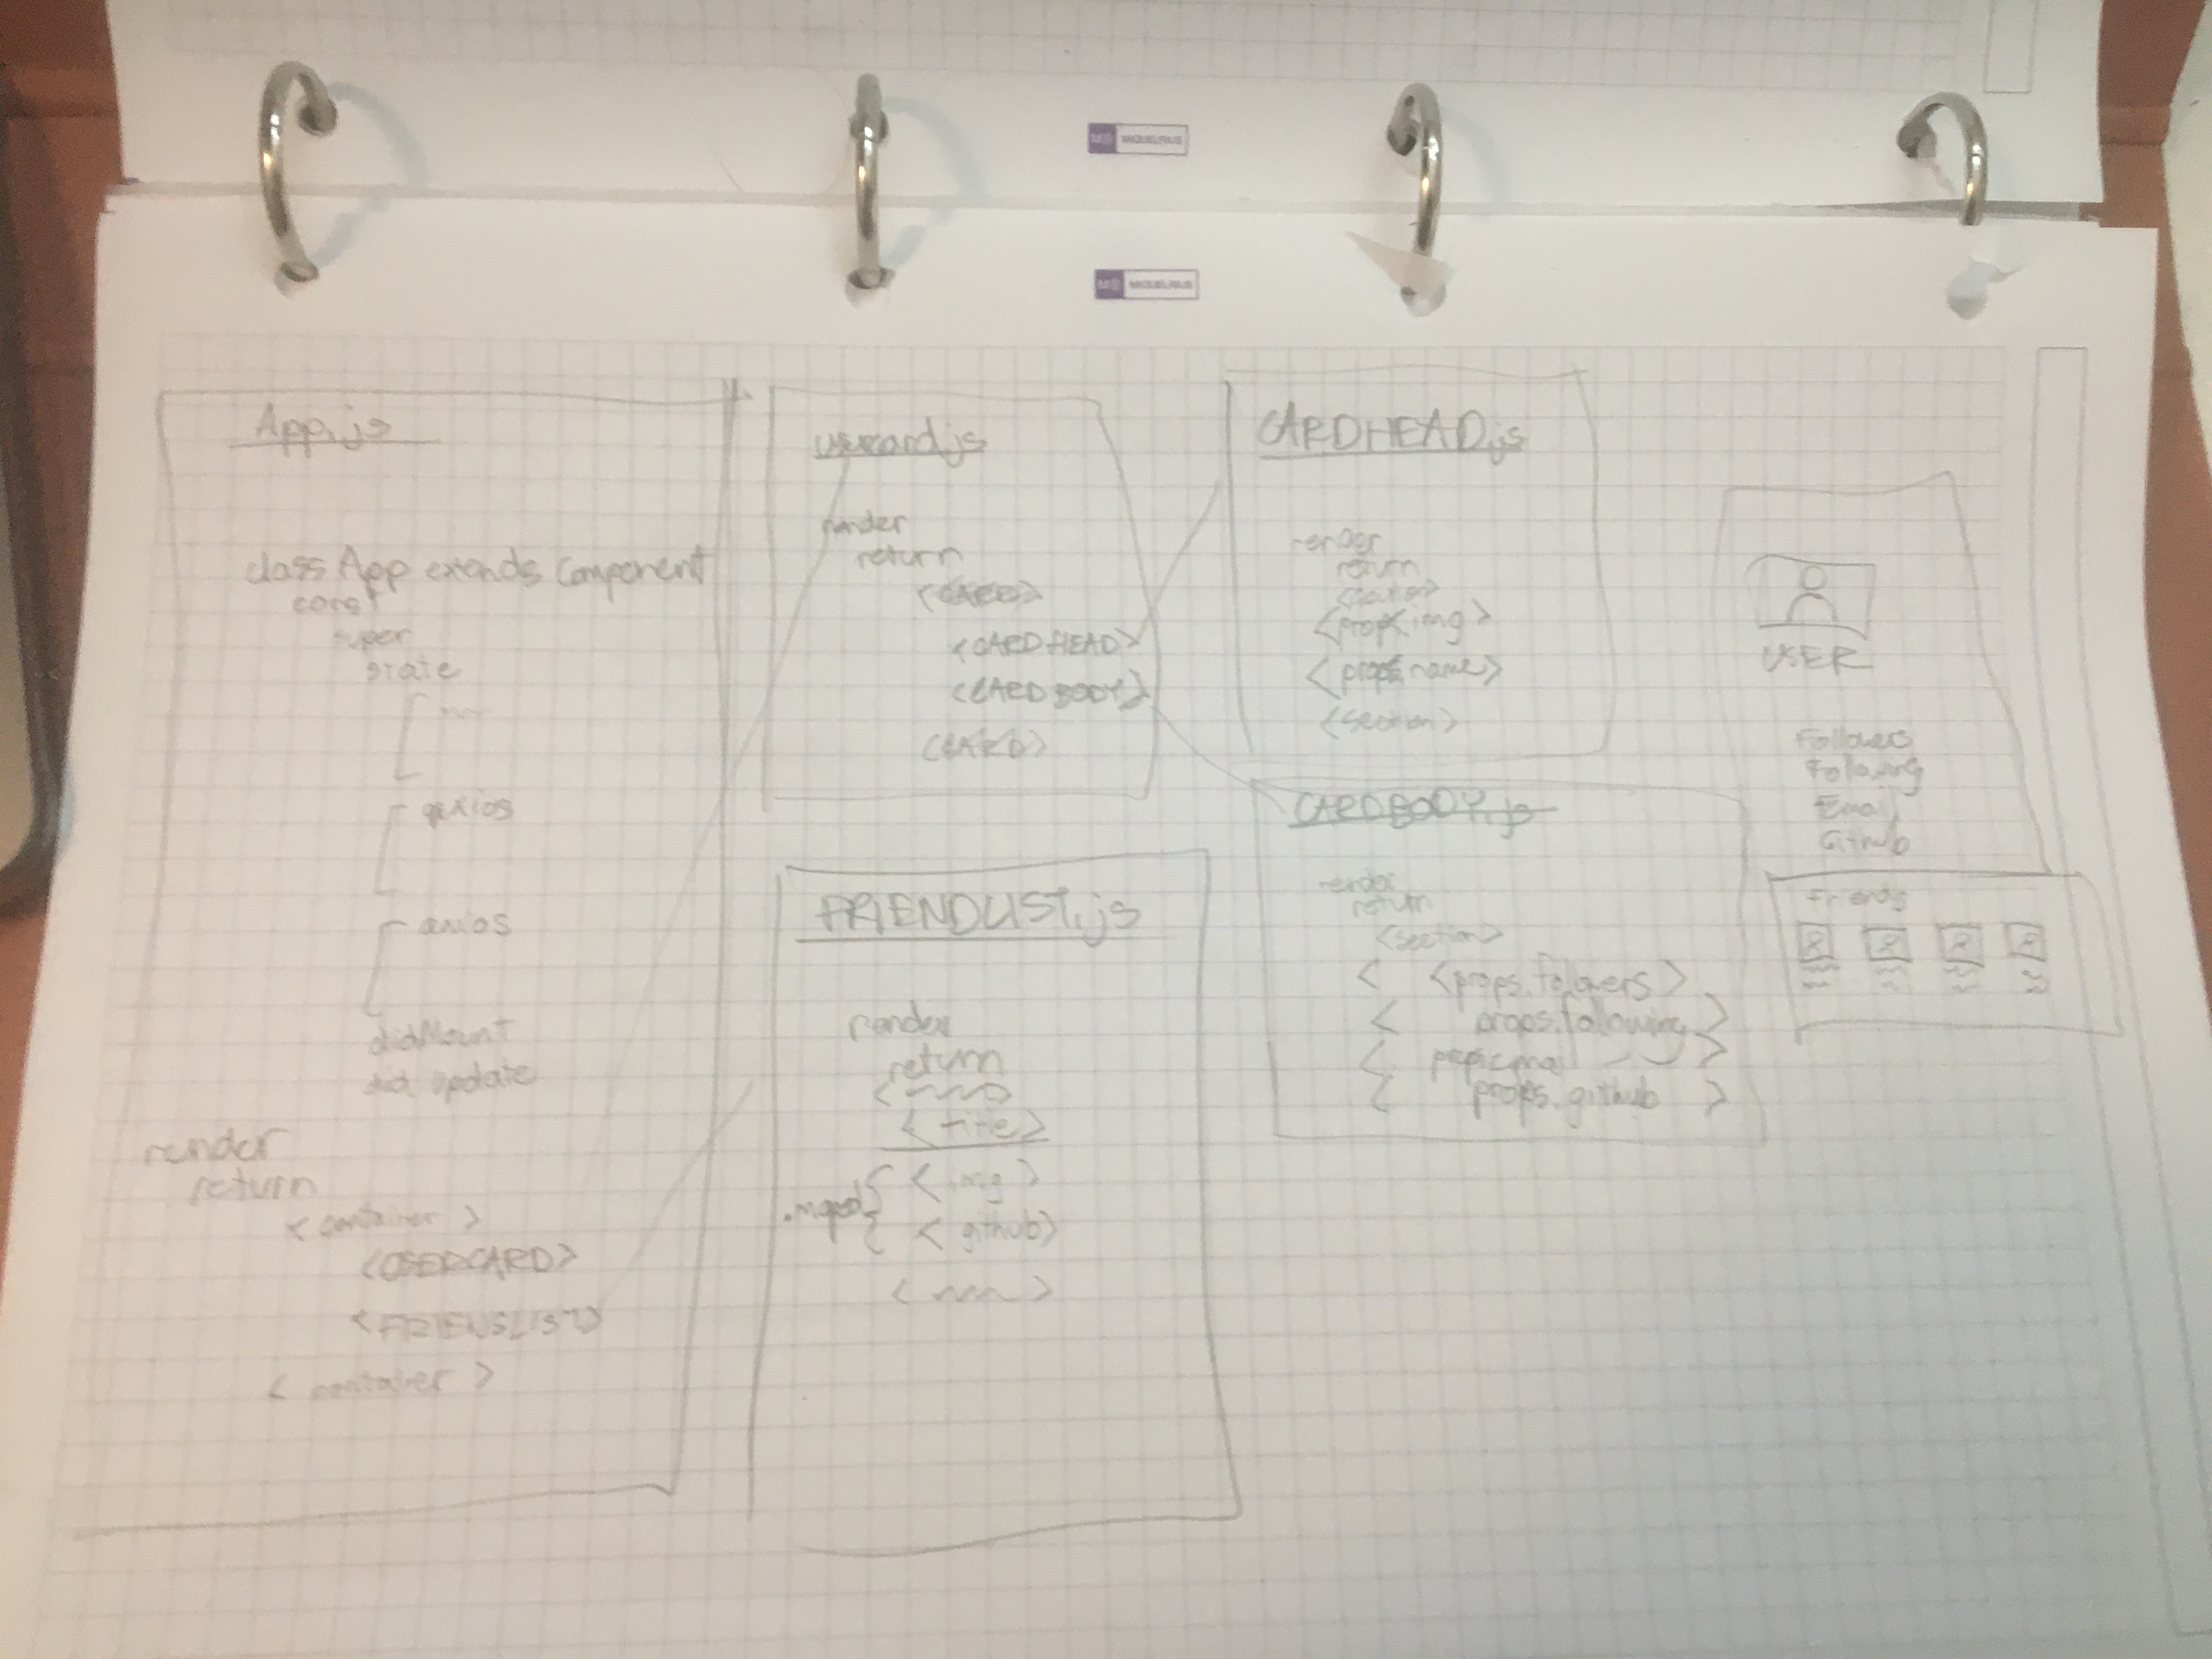 MR MIQUELRIUS
MR MIQUELRIUS
App.js
class App extends Component
const
super
state
axios
axios
didMount
did update
render
return
< container >
<USERCARD>
<FRIENSLIST>
< container >
usercard.js
render
return
<CARD>
<CARDHEAD>
<CARDBODY>
<CARD>
FRIENDLIST.js
render
return
.map
< img >
< github>
CARDHEAD.js
render
return
<props.img >
< props.name>
<section>
CARDBODY.js
render
return
<section>
< <props.followers >
< props.following >
< >
< props.github >
USER
Followers
Following
Email
Github
Friends